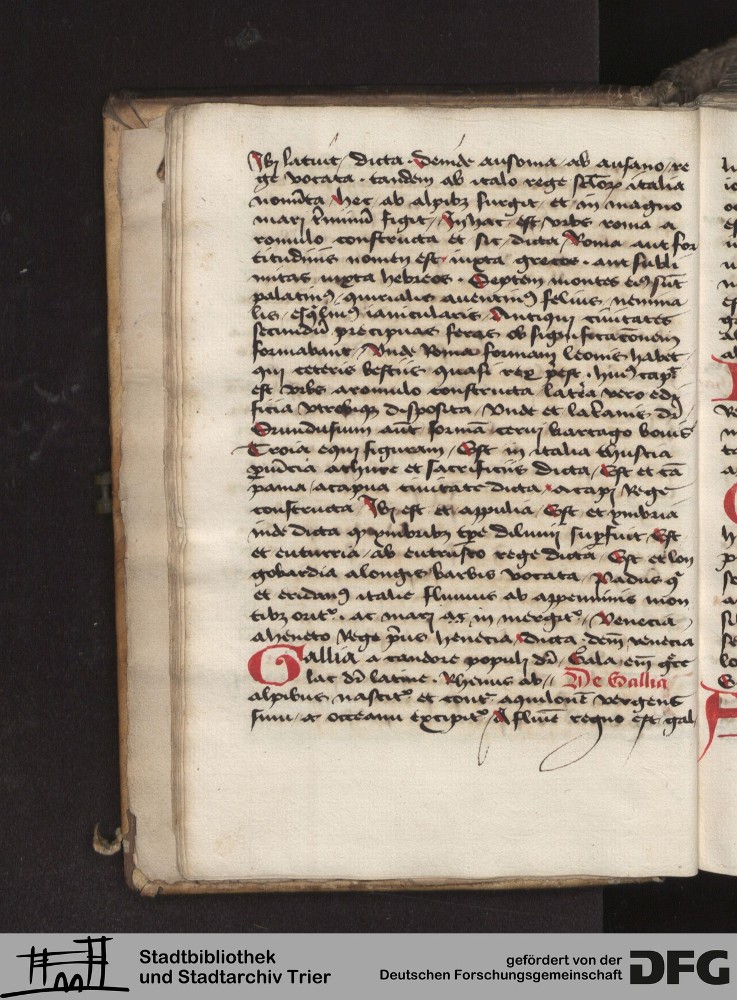 Ibi latuit dicta. Deinde ausonia ab ausano re
ge vocata. tandem ab italo rege italia
nominata hec ab alpibz surgit et in magno
mari terminum figit In hac est vrbs roma a
romulo constructa et sic dicta Roma aut for
titudinis nomen est iuxta grecos. aut subli
mitas iuxta hebreos. Septem montes eius sunt
palatinus, quirialis auentinus felius, nemina
lis, esquilinus ianicularis, Antiqui ciuitates
secundum precipuas feras ob significationem
formabant, Vnde Roma formam leonis habet
qui ceteris bestiis quasi rex preest. huius caput
est vrbs a romulo constructa latera vero edi
ficia vtrobique disposita, Vnde et lateranis dicitur
Brundusium autem formam cerui kartago bouis
Troia equi figuram, Est in italia thuscia
prouincia a thure et sacrificiis dicta, Est et cam
pania, a capua ciuitate dicta, a capi Rege
constructa Ibi est et appulia, Est et vmbria
inde dicta quod ymbribus tempore diluuii superfuit, Est
et eutruria, ab eutrusco rege dicta, Est et lon
gobardia a longis barbis vocata, Padus qui
et eridanus italie fluuius ab appeninis mon
tibz oritur. ac mari in mergitur, Venecia
a heneto Rege prius henecia dicta. demum venecia
Gallia a candore populi dicitur, Gala enim grece
lac dicitur latine. Rhenus ab // De Gallia
alpibus nascitur et contra aquilonem vergens
sinu occeani excipitur A flumine regno est gal
Stadtbibliothek
und Stadtarchiv Trier
gefördert von der
Deutschen Forschungsgemeinschaft
DFG